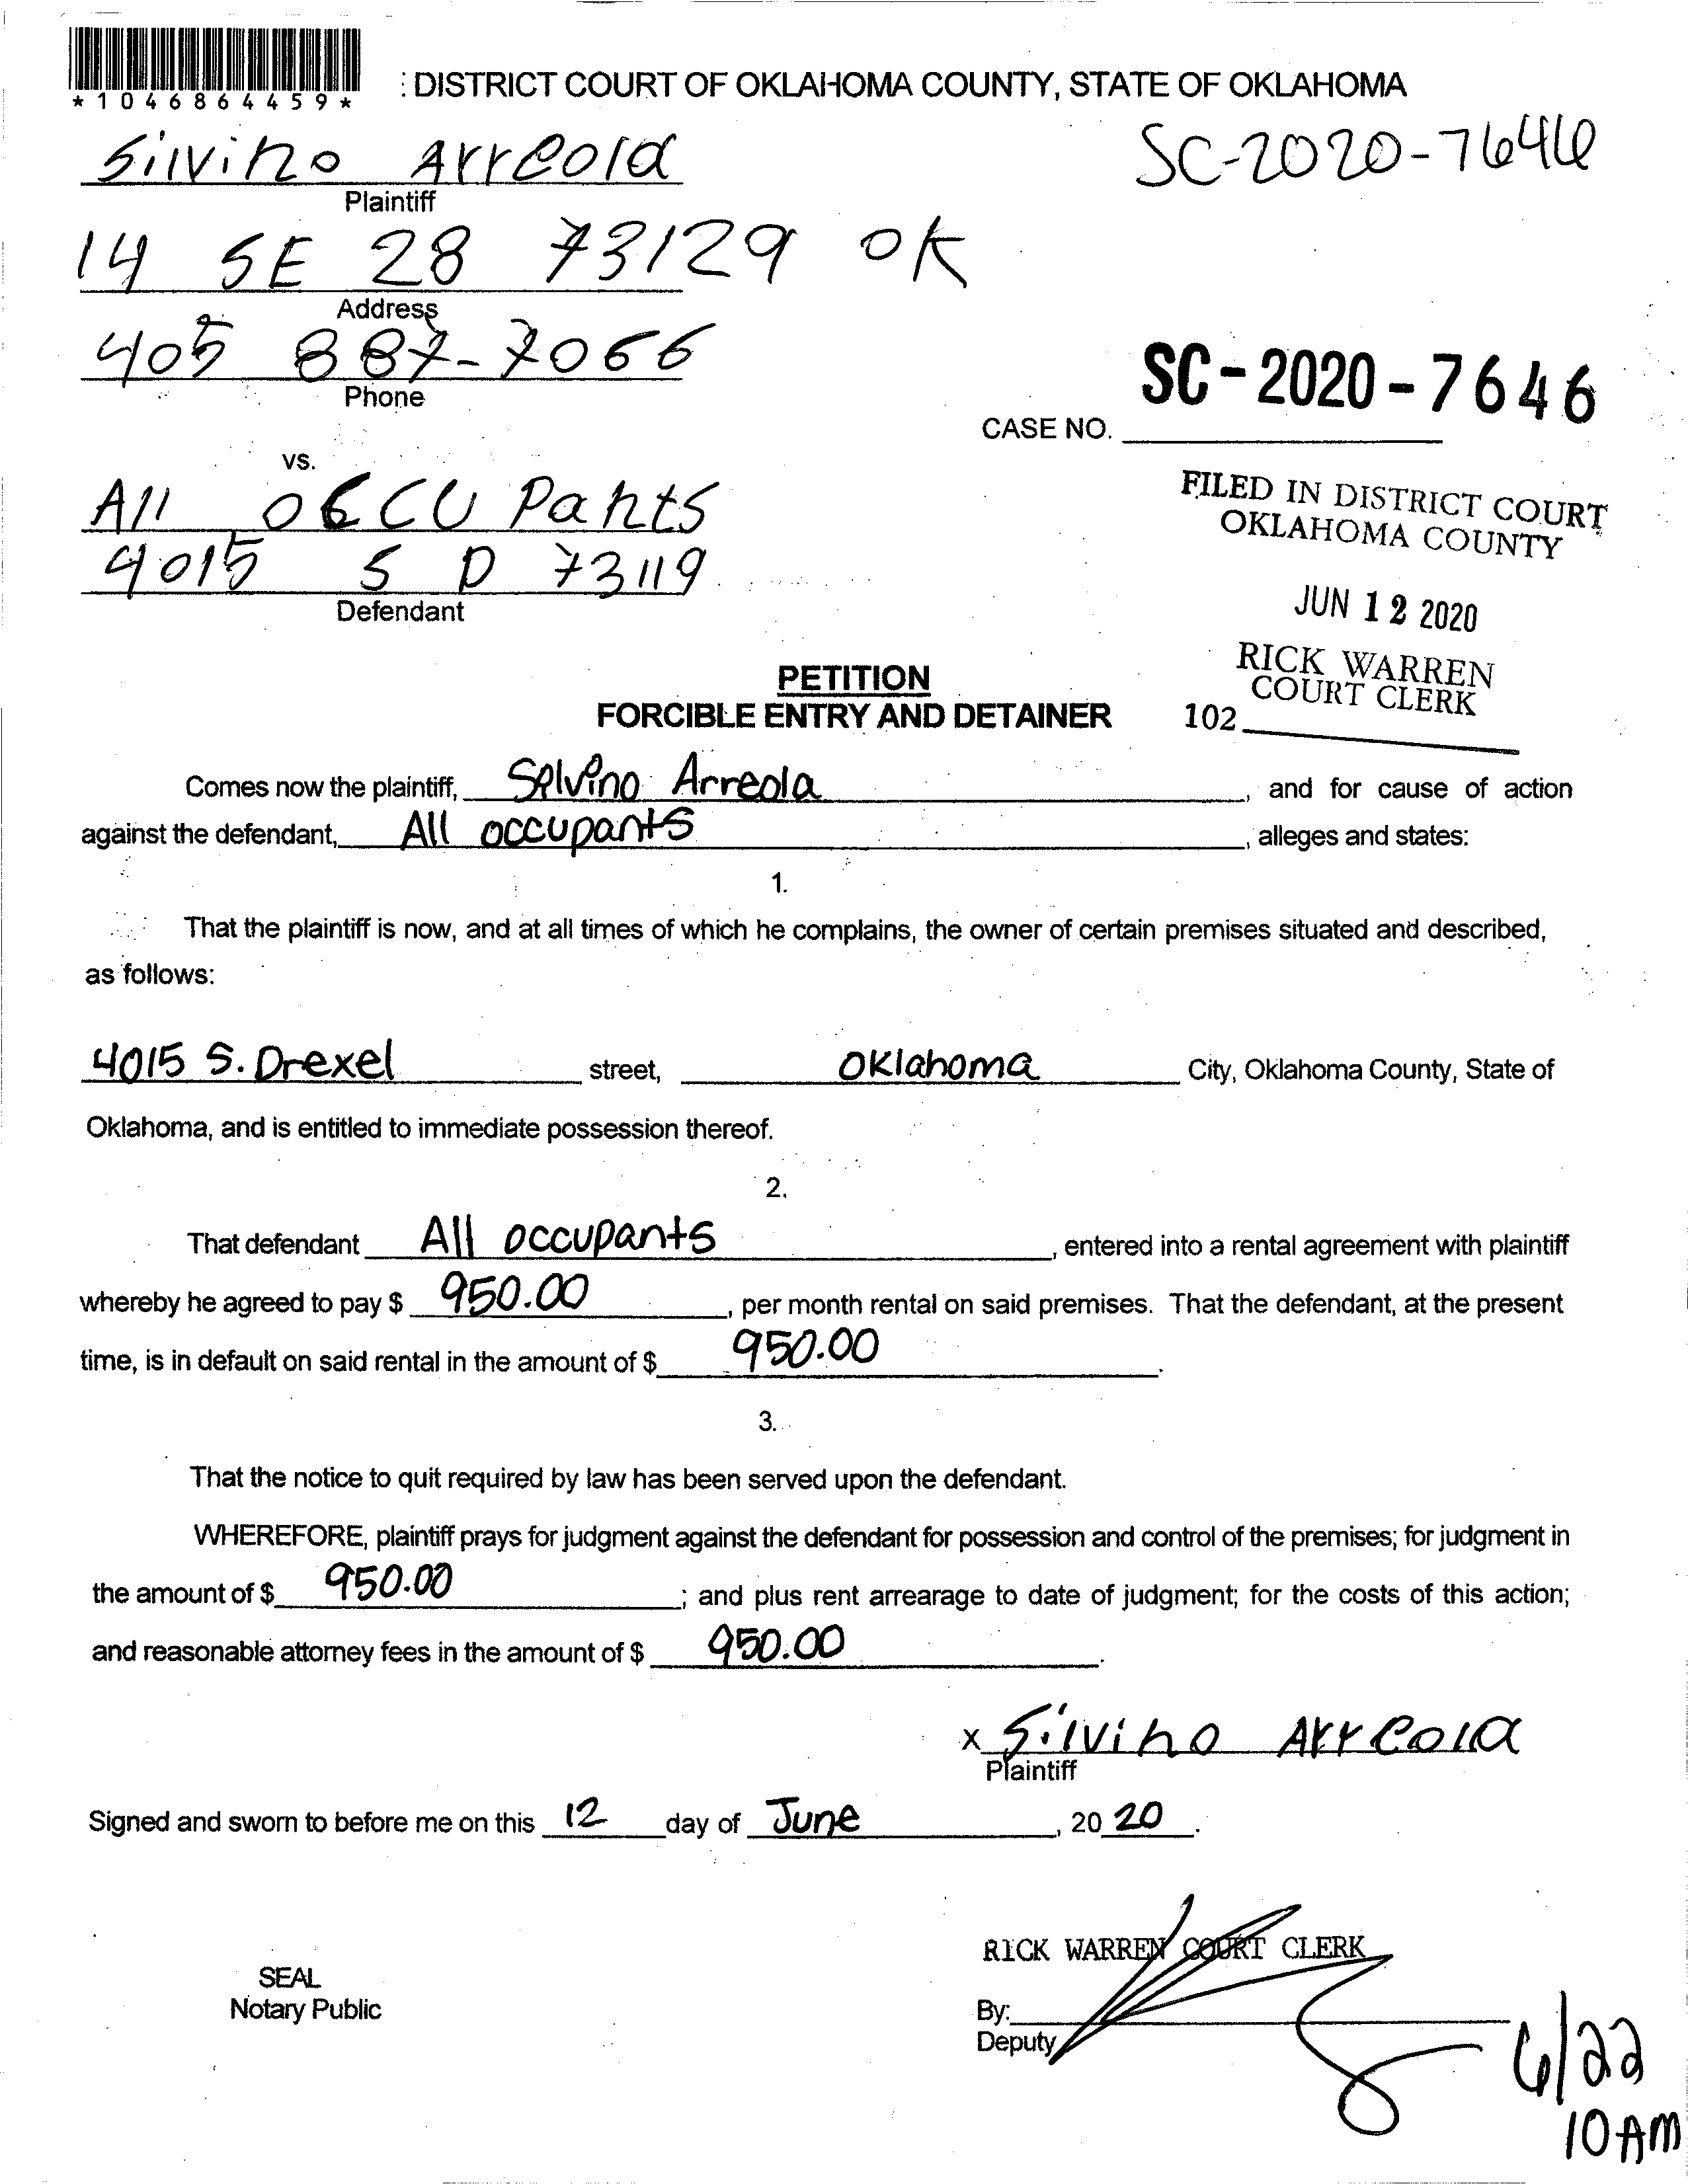 *1046864459*
: DISTRICT COURT OF OKLAHOMA COUNTY, STATE OF OKLAHOMA
Silvino Arreola
SC-2020-7646
Plaintiff
14 SE 28 73129 OK
Address
405 887-7066
Phone
SC-2020-7646
CASE NO.
vs.
All occupants
4015 S D 73119
Defendant
FILED IN DISTRICT COURT
OKLAHOMA COUNTY
JUN 12 2020
RICK WARREN
COURT CLERK
102
PETITION
FORCIBLE ENTRY AND DETAINER
Comes now the plaintiff, Selvino Arreola, and for cause of action
against the defendant, All occupants, alleges and states:
1.
That the plaintiff is now, and at all times of which he complains, the owner of certain premises situated and described,
as follows:
4015 S. Drexel street, Oklahoma City, Oklahoma County, State of
Oklahoma, and is entitled to immediate possession thereof.
2.
That defendant All occupants, entered into a rental agreement with plaintiff
whereby he agreed to pay $ 950.00, per month rental on said premises. That the defendant, at the present
time, is in default on said rental in the amount of $ 950.00.
3.
That the notice to quit required by law has been served upon the defendant.
WHEREFORE, plaintiff prays for judgment against the defendant for possession and control of the premises; for judgment in
the amount of $ 950.00; and plus rent arrearage to date of judgment; for the costs of this action;
and reasonable attorney fees in the amount of $ 950.00.
x Silvino Arreola
Plaintiff
Signed and sworn to before me on this 12 day of June, 20 20.
RICK WARREN COURT CLERK
SEAL
Notary Public
By:
Deputy
6/22
10 AM